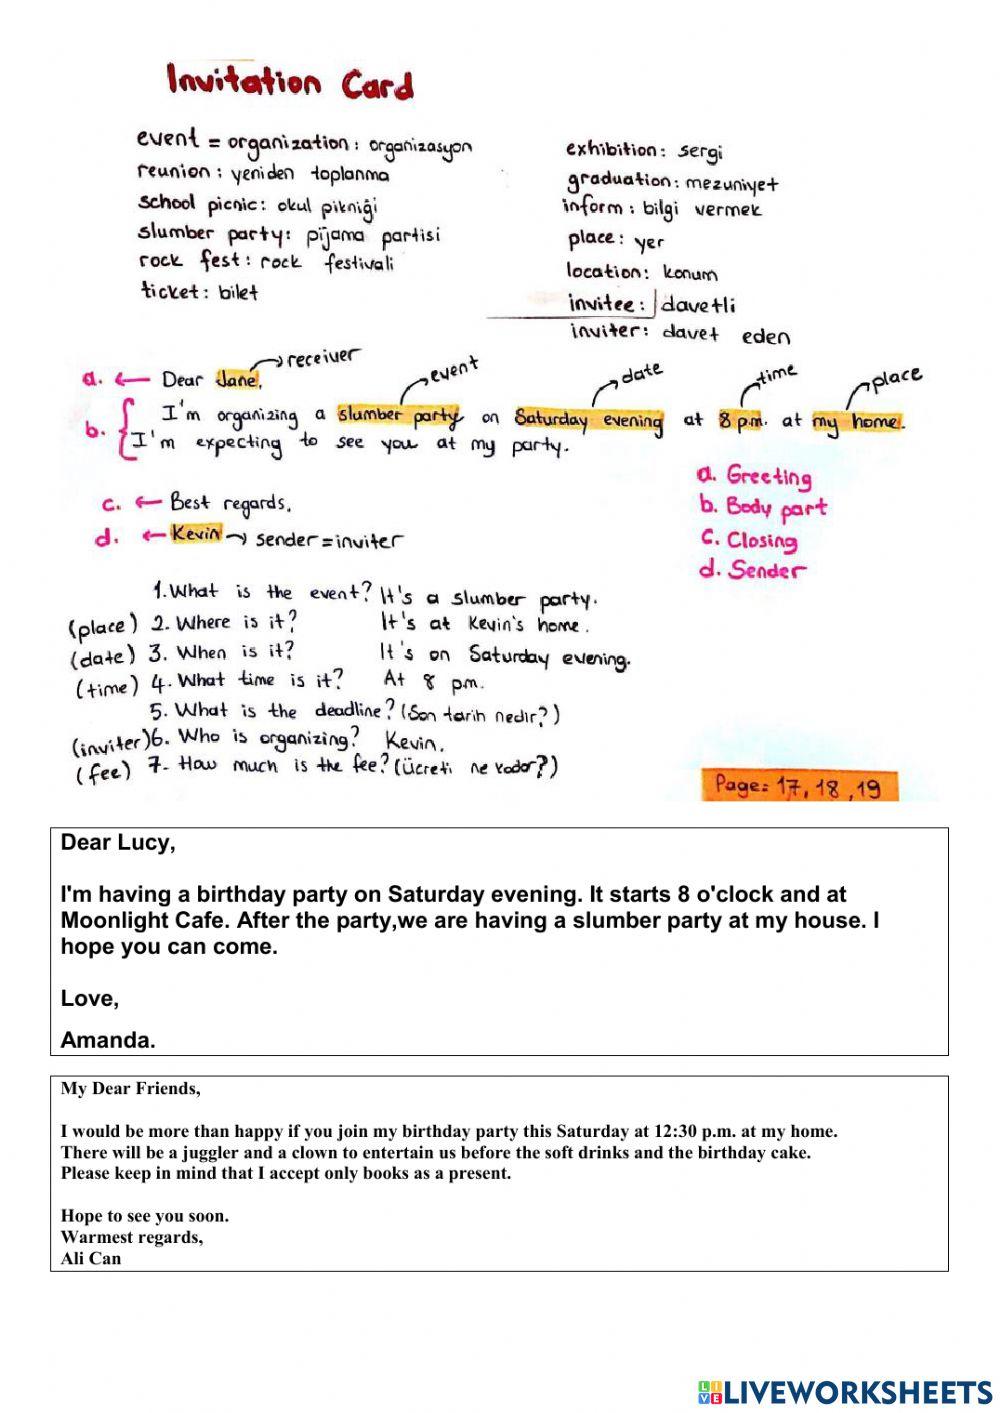 Invitation Card
event = organization : organizasyon
reunion : yeniden toplanma
school picnic : okul pikniği
slumber party : pijama partisi
rock fest : rock festivali
ticket : bilet
exhibition : sergi
graduation : mezuniyet
inform : bilgi vermek
place : yer
location : konum
invitee : davetli
inviter : davet eden
receiver
a. ← Dear Jane,
event
date
time
place
b. { I'm organizing a slumber party on Saturday evening at 8 p.m. at my home.
I'm expecting to see you at my party.
c. ← Best regards,
d. ← Kevin → sender = inviter
a. Greeting
b. Body part
c. Closing
d. Sender
1. What is the event? It's a slumber party.
(place) 2. Where is it? It's at Kevin's home.
(date) 3. When is it? It's on Saturday evening.
(time) 4. What time is it? At 8 p.m.
5. What is the deadline? (Son tarih nedir?)
(inviter) 6. Who is organizing? Kevin.
(fee) 7. How much is the fee? (Ücreti ne kadar?)
Page: 17, 18, 19
Dear Lucy,
I'm having a birthday party on Saturday evening. It starts 8 o'clock and at
Moonlight Cafe. After the party,we are having a slumber party at my house. I
hope you can come.
Love,
Amanda.
My Dear Friends,
I would be more than happy if you join my birthday party this Saturday at 12:30 p.m. at my home.
There will be a juggler and a clown to entertain us before the soft drinks and the birthday cake.
Please keep in mind that I accept only books as a present.
Hope to see you soon.
Warmest regards,
Ali Can
LIVE LIVEWORKSHEETS